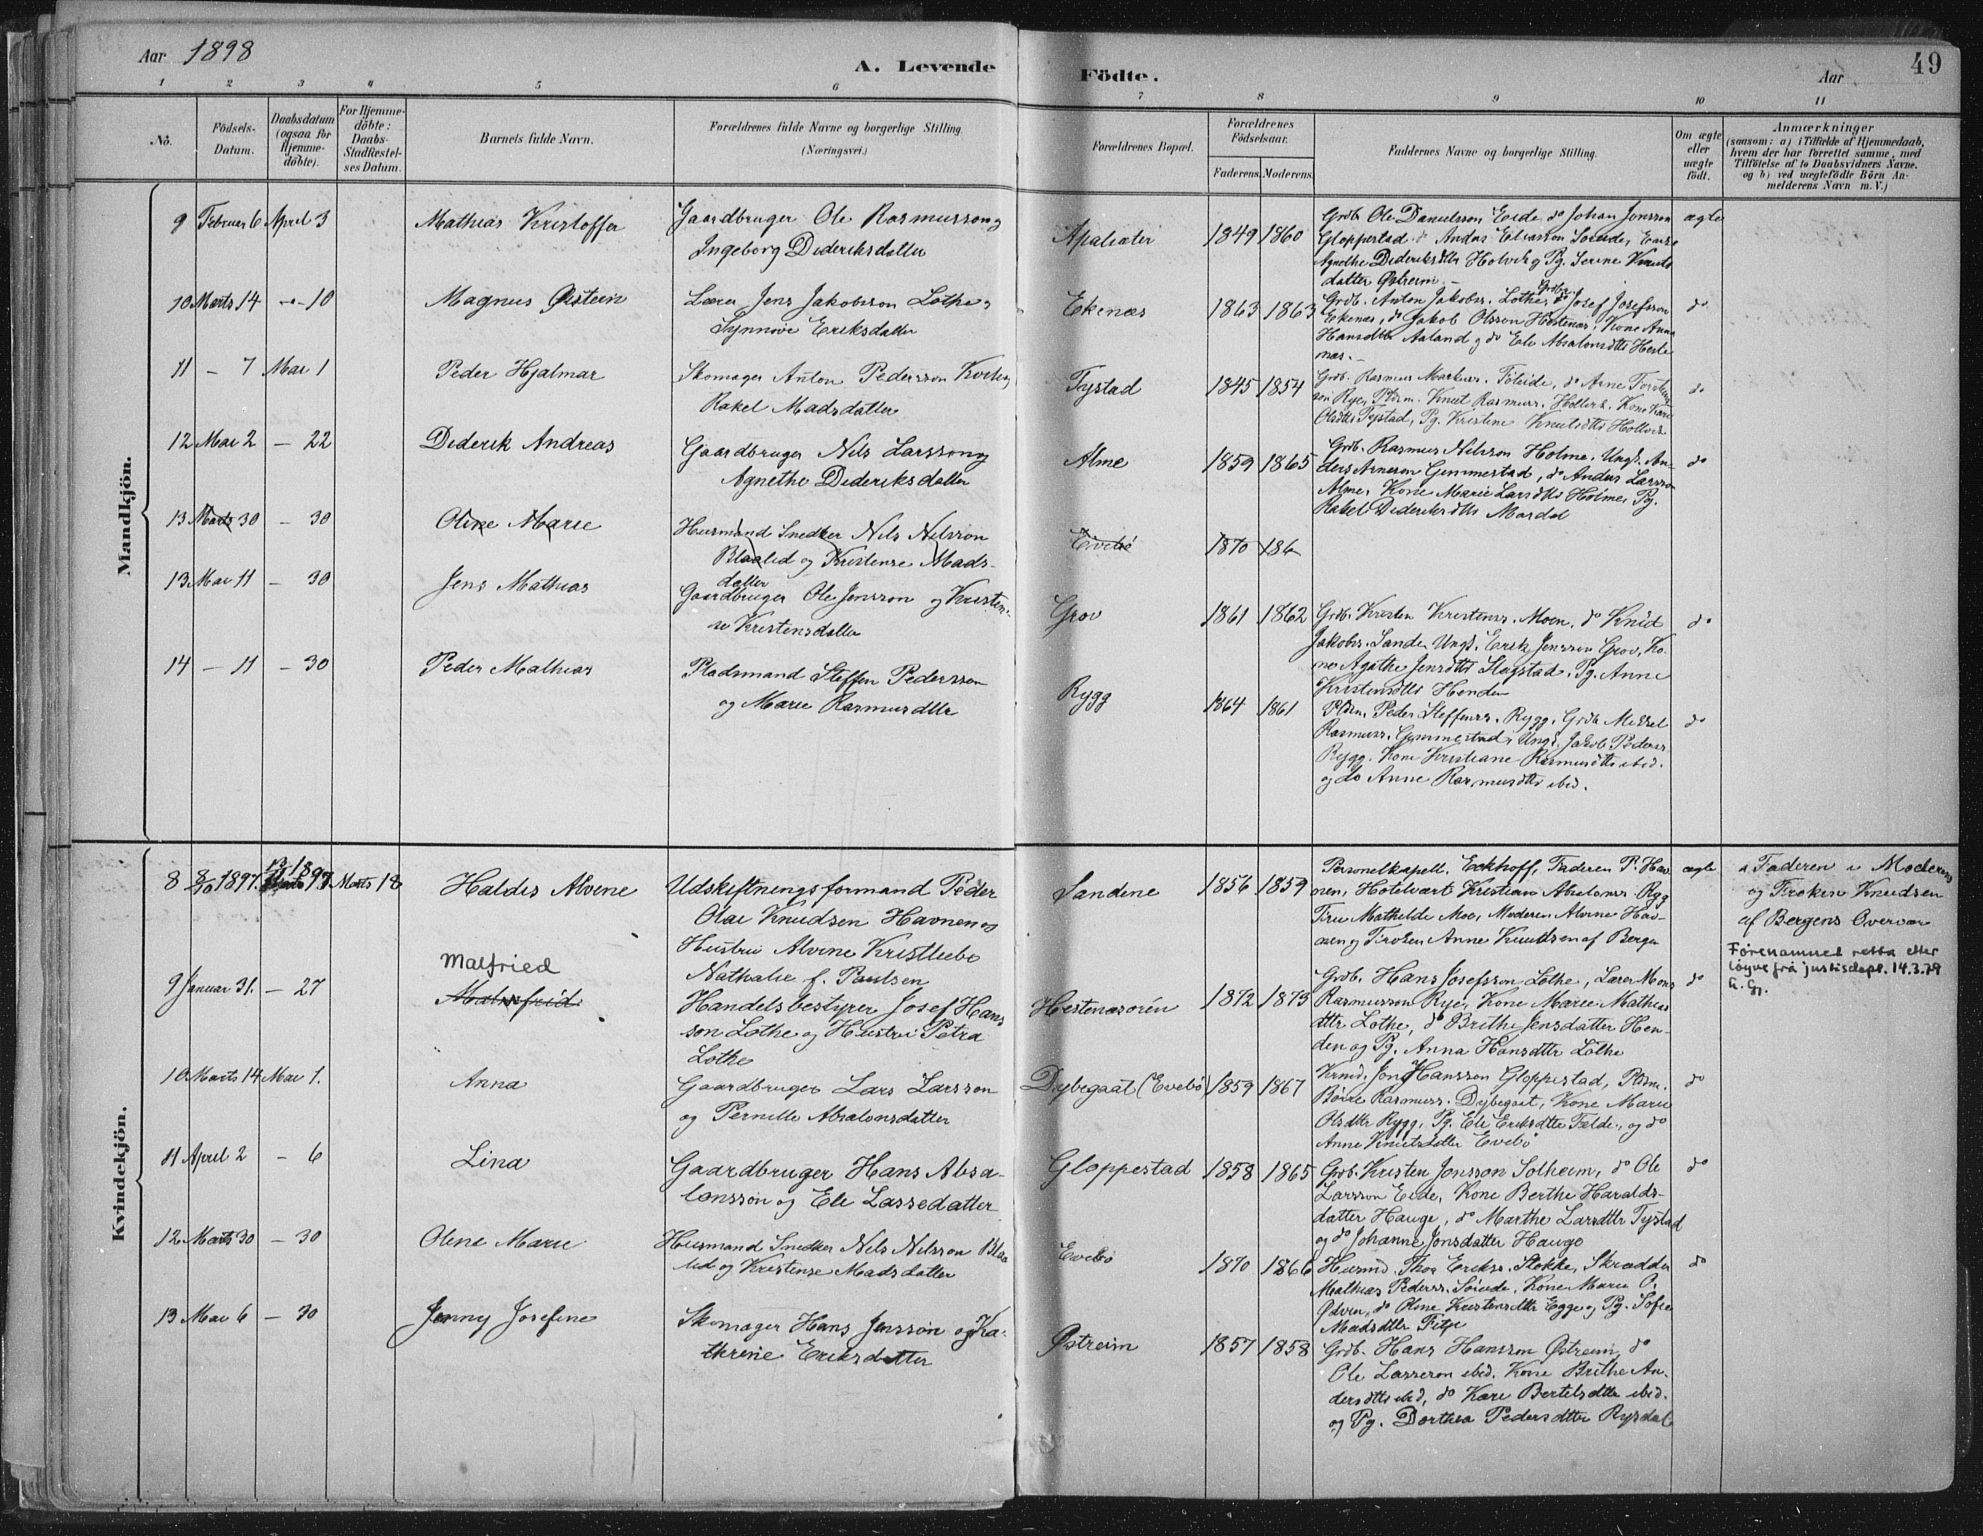 Aar 1898
A. Levende
Födte.
Aar
49
1 2 3 4 5 6 7 8 9 10 11
No.
Födsels-
Datum.
Daabsdatum
(ogsaa for
Hjemme-
döbte).
For Hjemme-
döbte:
Daabs-
Stadfæstel-
ses Datum.
Barnets fulde Navn.
Forældrenes fulde Navne og borgerlige Stilling.
(Næringsvei.)
Forældrenes Bopæl.
Forældrenes
Födselsaar.
Faderens. Moderens.
Faddernes Navne og borgerlige Stilling.
Om ægte
eller
uægte
födt.
Anmærkninger
(saasom: a) i Tilfælde af Hjemmedaab,
hvem der har forrettet samme, med
Tilföielse af to Daabsvidners Navne,
og b) ved uægtefödte Börn An-
melderens Navn m. V.)
Mandkjön.
9 Februar 6 April 3 Mathias Kristoffer Gaardbruger Ole Rasmusson og
Ingeborg Dideriksdatter
Apalsæter 1849 1860
Grdb. Ole Danielsson Eide, do Johan Jonsson
Gloppestad, do Andas Eliasson Soreide, Enke
Agnethe Dideriksdtr Holvik og Pg. Serine Knuts
datter Østreim. -
ægte
10 Marts 14 -"- 10 Magnus Øistein Lærer Jens Jakobsson Lothe og
Synnøve Eriksdatter
Ekenæs 1863 1863
Grdb. Anton Jakobss. Lothe, Grdbr. do Josef Josefsson
Ekenæs, do Jakob Olsson Hestenæs, Kone Anna
Hansdtter Aaland og do Eli Absalonsdtts Heste
næs. -
do
11 - 7 Mai 1 Peder Hjalmar Skomager Anton Pedersson
Rakel Madsdatter
Tystad 1845 1854
Grdb. Rasmus Markuss. Föleide, do Arne
son Rye, Pldsm. Knut Rasmuss. Holvik, Kone Kari
Olsdtts Tystad, Pg. Kristine Knutsdtts Holvik
do
12 Mai 2 - 22 Diderik Andreas Gaardbruger Nils Larsson og
Agnethe Dideriksdatter
Alme 1859 1865
Grdb. Rasmus Nilsson Holme, Ungk. An-
ders Arneson Gimmestad, do Anders Larsson
Alme, Kone Marie Larsdtts Holme, Pg.
Rakel Dideriksdtts Mardal
do
13 Marts 30 - 30 Oline Marie Husmand Snedker Nils Nilsson
Blaalid og Kristense Mads-
datter
Evebö 1870 186
13 Mai 11 - 30 Jens Mathias Gaardbruger Ole Jensson og Kristen-
se Kristensdatter
Grov 1861 1862
Grdb. Kristen Kristenss. Moen, do Knud
Jakobss. Sande, Ungk. Erik Jensson Grov, Ko-
ne Agathe Jensdtts Slagstad, Pg. Anne
Kristensdtts Henden
do
14 - 11 - 30 Peder Mathias Pladsmand Steffen Pedersson
og Marie Rasmusdtter
Rygg 1864 1861
Pldsm. Peder Steffenss. Rygg, Grdb. Mikkel
Rasmuss. Gimmestad, Ungk. Jakob Pederss.
Rygg. Kone Kristiane Rasmusdtts ibid.
og do Anne Rasmusdtts ibid.
do
Kvindekjön.
8 8/10 1897. 1897 Marts 18 Haldis Alvine Udskiftningsformand Peder
Olai Knudsen Havnen og
Hustru Alvine Kristliebe
Nathalie f. Paulsen
Sandene 1856 1859
Personelkapell. Eckhoff, Faderen P. Hav-
nen, Hotelvært Kristian Absalonss. Rygg
Fru Mathilde Moe, Moderen Alvine Hav-
nen og Frøken Anne Knudsen af Bergen
ægte
Faderen i Moderens
og Frøken Knudsen
af Bergens Overvær
9 Januar 31. - 27 Malfried
Malmfrid
Handelsbestyrer Josef Hans
son Lothe og Hustru Petra
Lothe
Hestenæsören 1872 1875
Grdb. Hans Josefsson Lothe, Lærer Mons
Rasmusson Rye, Kone Marie Mathias
dtts Lothe, do Brithe Jensdatter Hen-
den og Pg. Anna Hansdtter Lothe
do
Førenamnet retta etter
løyve frå justisdept. 14.3.79
G. Gj.
10 Marts 14 Mai 1. Anna Gaardbruger Lars Larsson
og Pernille Absalonsdatter
Dybegaat (Evebö) 1859 1867
Krmd. Jon Hansson Gloppestad, Pldsm.
Börre Rasmuss. Dybegaat, Kone Marie
Olsdtter Rygg, Pg. Eli Eriksdtter Fælde, og do
Anne Knutsdatter Evebö
do
11 April 2 - 6 Lina Gaardbruger Hans Absa-
lonssön og Eli Lassedatter
Gloppestad 1858 1865
Grdb. Kristen Jonsson Solheim, do Ole
Larsson Eide, Kone Berthe Haralds-
datter Hauge, do Marthe Larsdtter Tystad
og do Johanne Jonsdatter Hauge
do
12 Marts 30 - 30 Oline Marie Husmand Snedker Nils Nilsson Blaa
lid og Kristense Madsdatter
Evebö 1870 1866
Husmd. Thor Erikss. Stokke, Skrædder
Mathias Pederss. Söreide, Kone Marie O.
Ødven, do Oline Kristensdtter Egge og Pg. Sofie
Madsdtter Fitje
do
13 Mai 6 - 30 Jenny Josefine Skomager Hans Jenssön og Ka-
thrine Eriksdatter
Østreim 1857 1858
Grdb. Hans Hansson Østreim, do
Ole Lasseson ibid. Kone Brithe An-
dersdtts ibid, do Kari Bertelsdtter ibid.
og Pg. Dorthea Pedersdtter Rysdal